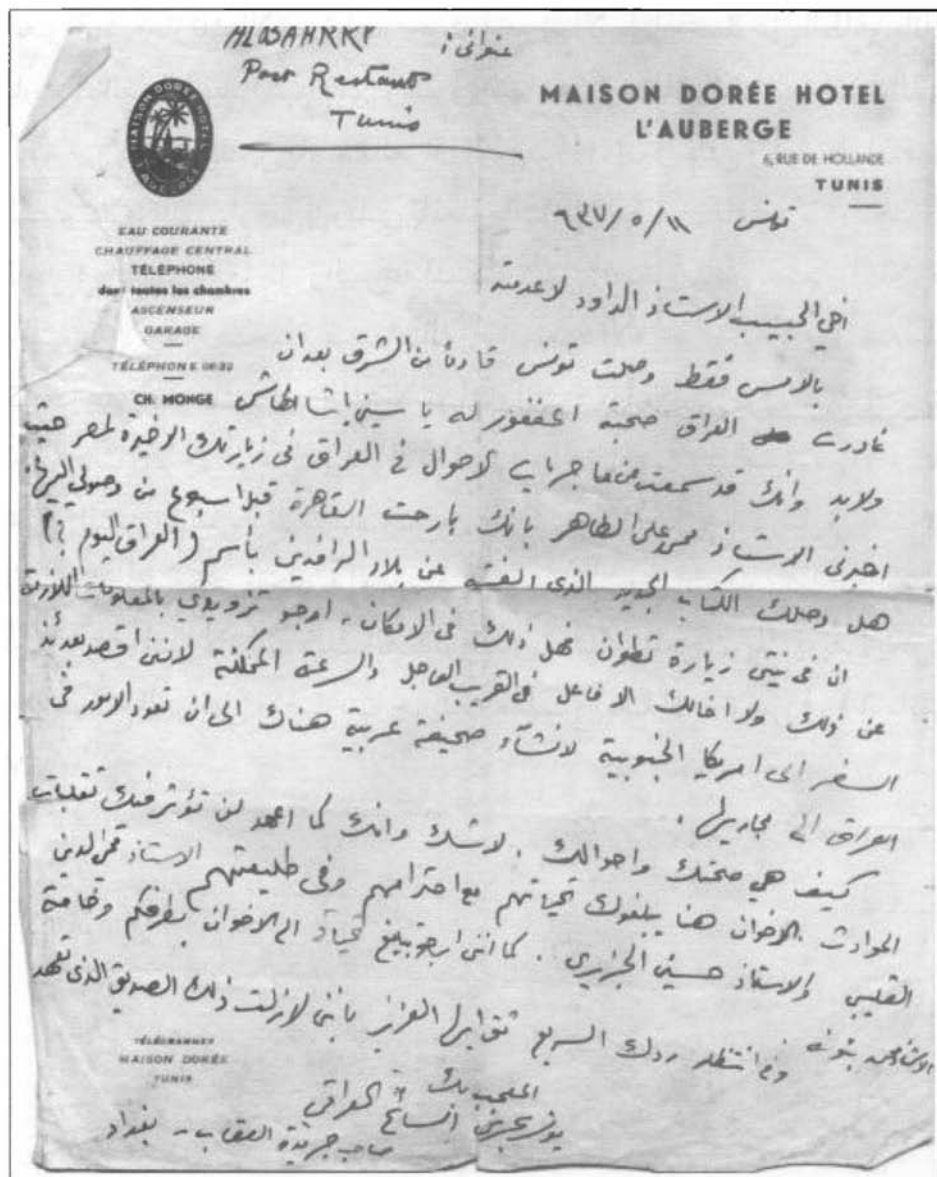 عنواني :
ALBSAHRRP
Post Restante
Tunis
MAISON DORÉE HOTEL
L'AUBERGE
6, RUE DE HOLLANDE
TUNIS
MAISON DORÉE HOTEL
EAU COURANTE
CHAUFFAGE CENTRAL
TÉLÉPHONE
dans toutes les chambres
ASCENSEUR
GARAGE
TÉLÉPHONE 06-32
CH. MONGE
تونس ١١/٥/٩٣٧
اخي الحبيب الاستاذ الداود لا عدمته
بالامس فقط وصلت تونس قادما من الشرق بعد ان
غادرت العراق صحبة المغفور له ياسين باشا الهاشمي
ولابد وانك قد سمعت عن ماجريات الاحوال في العراق في زيارتك الاخيرة لمصر حيث
اخبرني الاستاذ محمد علي الطاهر بانك بارحت القاهرة قبل اسبوع من وصولي اليها.
هل وصلك الكتاب الجديد الذي الفته عن بلاد الرافدين بأسم (العراق اليوم ؟)
ان في نيتي زيارة تطوان فهل ذلك في الامكان، ارجو تزويدي بالمعلومات اللازمة
عن ذلك ولا اخالك الا فاعل في القريب العاجل والسرعة الممكنة لانني اقصد بعدئذ
السفر الى امريكا الجنوبية لانشاء صحيفة عربية هناك الى ان تعود الامور في
العراق الى مجاريها .
كيف هي صحتك واحوالك . لاشك وانك كما اعهد لن تؤثر فيك تقلبات
الحوادث . الاخوان هنا يبلغوك تحياتهم مع احترامهم وفي طليعتهم الاستاذ محي الدين
القليبي والاستاذ حسين الجزيري . كما انني ارجو تبليغ تحياتي الى الاخوان بطرفكم وخاصة
الاستاذ محمد بنونه وفي انتظار ردك السريع ثق ايها العزيز بانني لازلت ذلك الصديق الذي تعهد
المعجب بك
يونس بحري السائح العراقي
صاحب جريدة العقاب - بغداد
TÉLÉGRAMMES
MAISON DORÉE
TUNIS